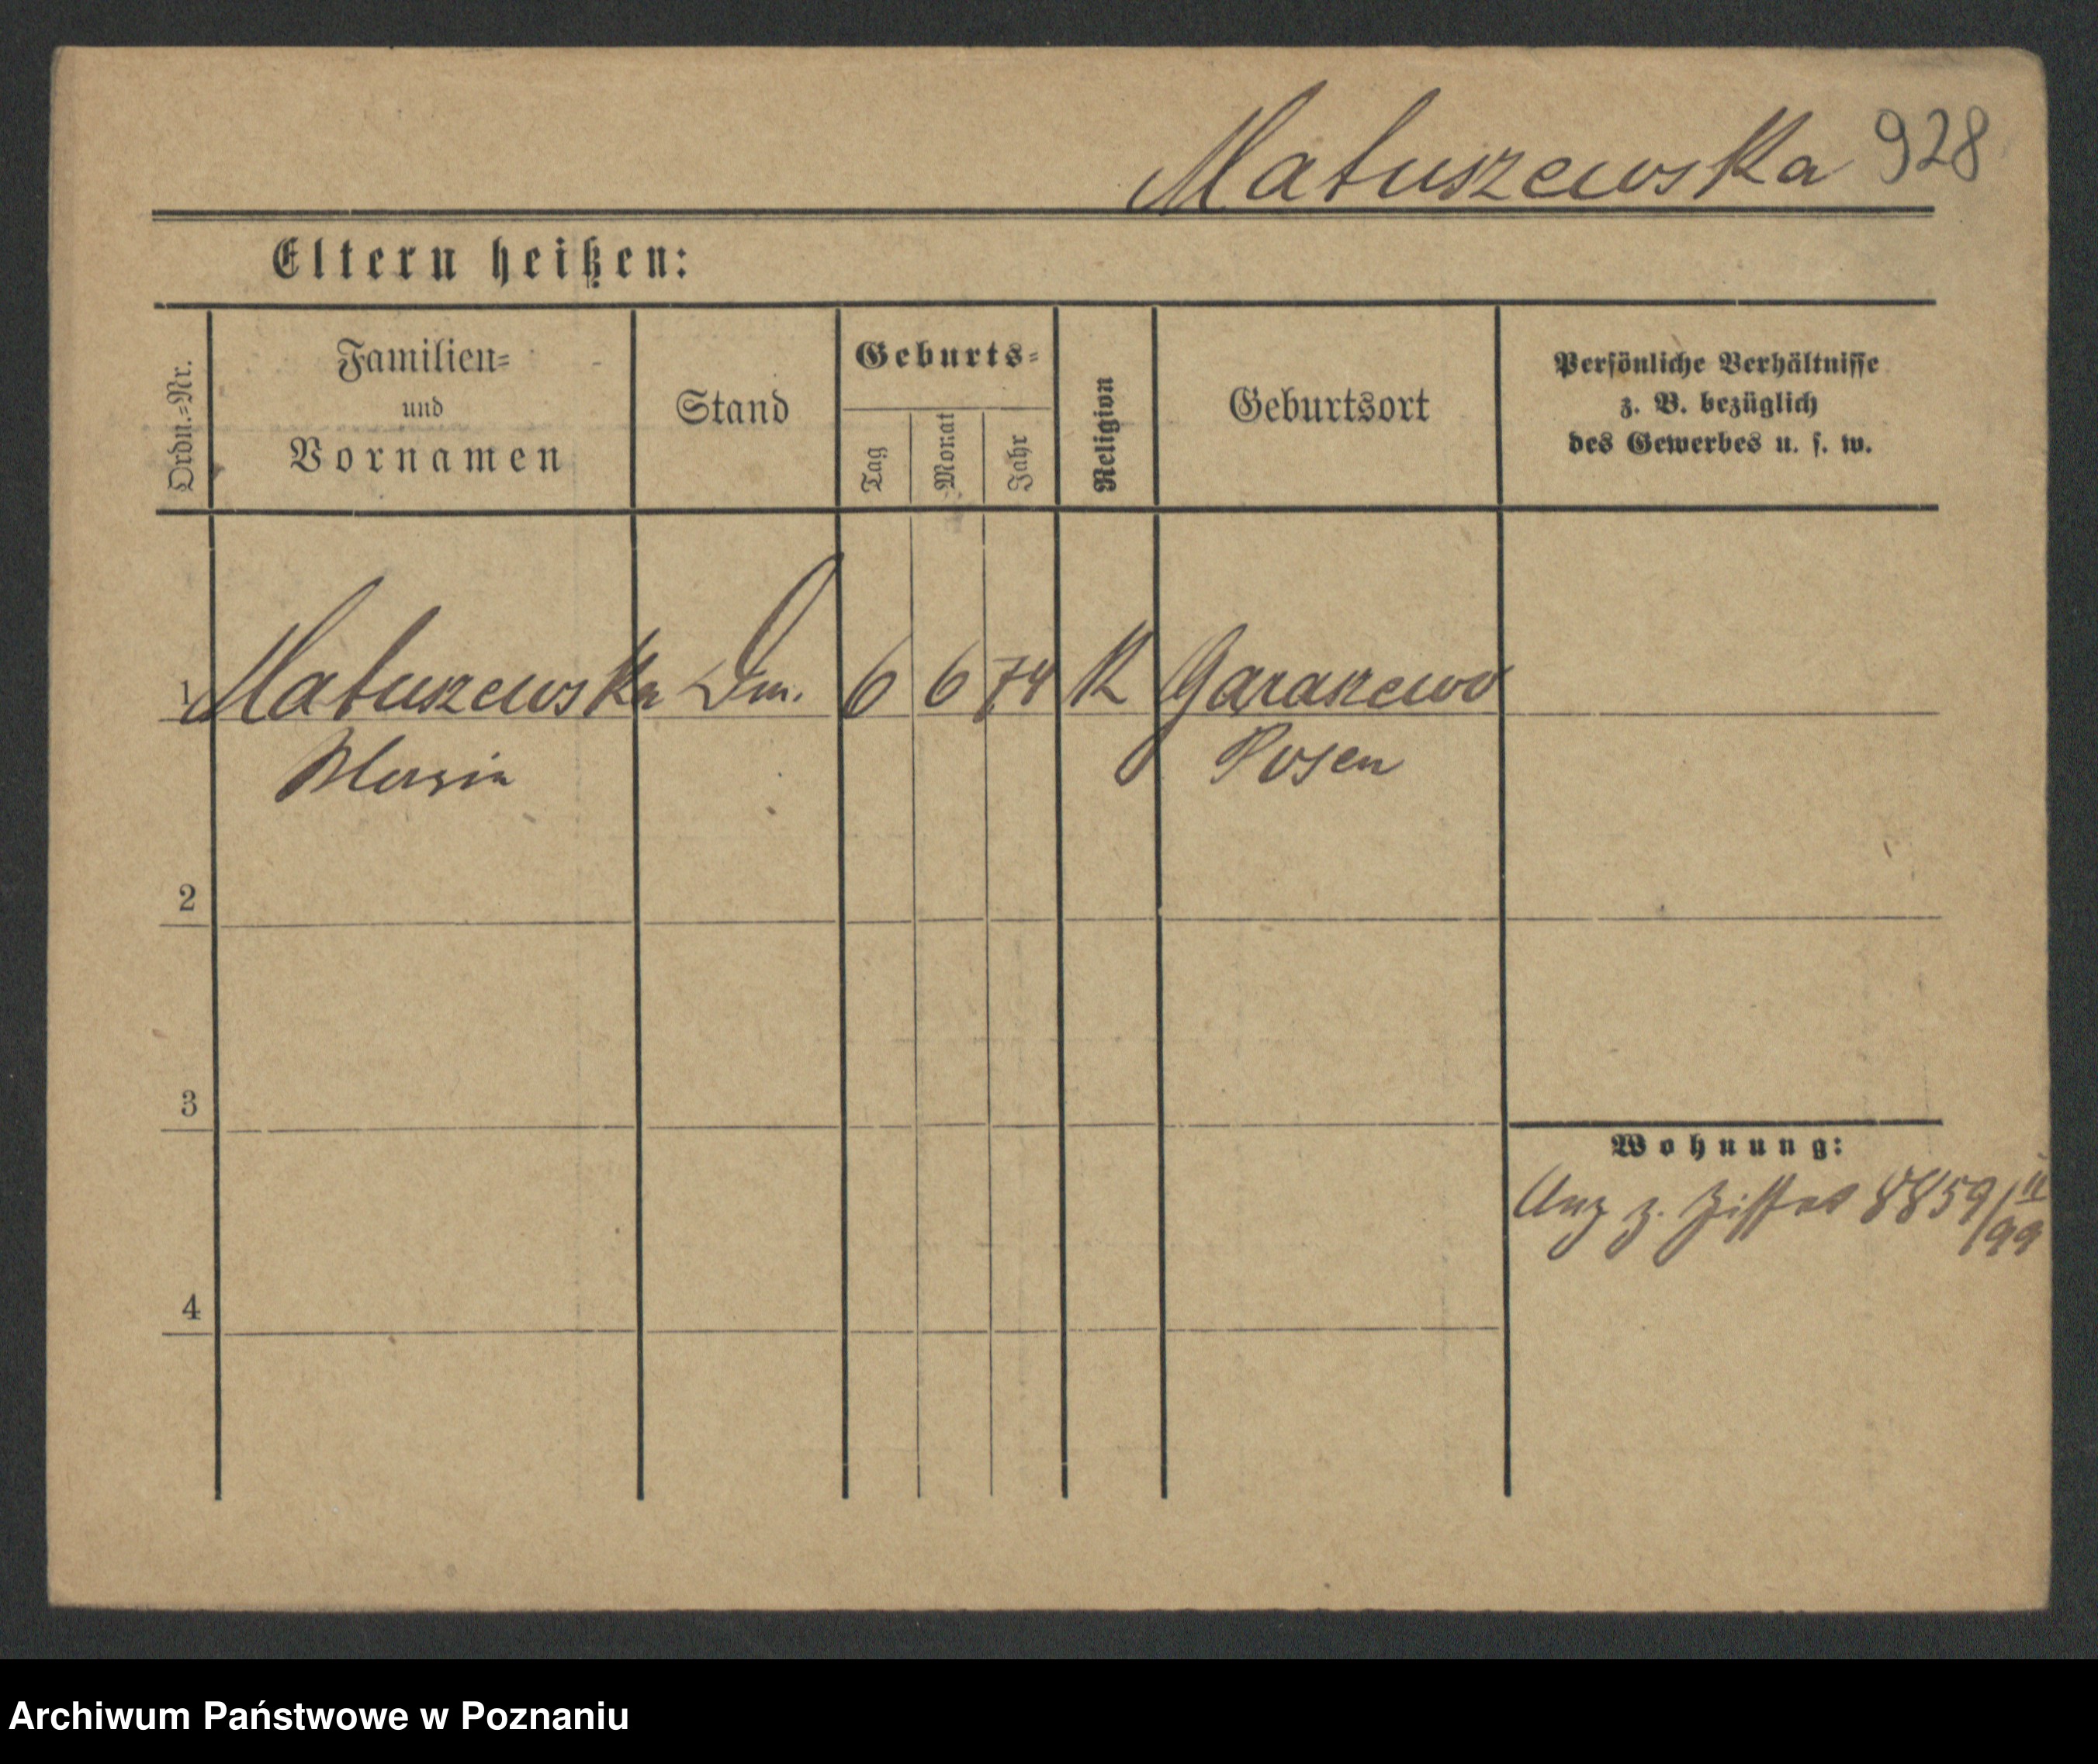 Matuszewska 928
Eltern heißen:
Ordn.=Nr.
Familien=
und
Vornamen
Stand
Geburts=
Tag
Monat
Jahr
Religion
Geburtsort
Persönliche Verhältnisse
z. B. bezüglich
des Gewerbes u. s. w.
1 Matuszewska 6 6 74 K Garaszewo
Maria Posen
2
3
Wohnung:
z. 8859/II 99
4
Archiwum Państwowe w Poznaniu